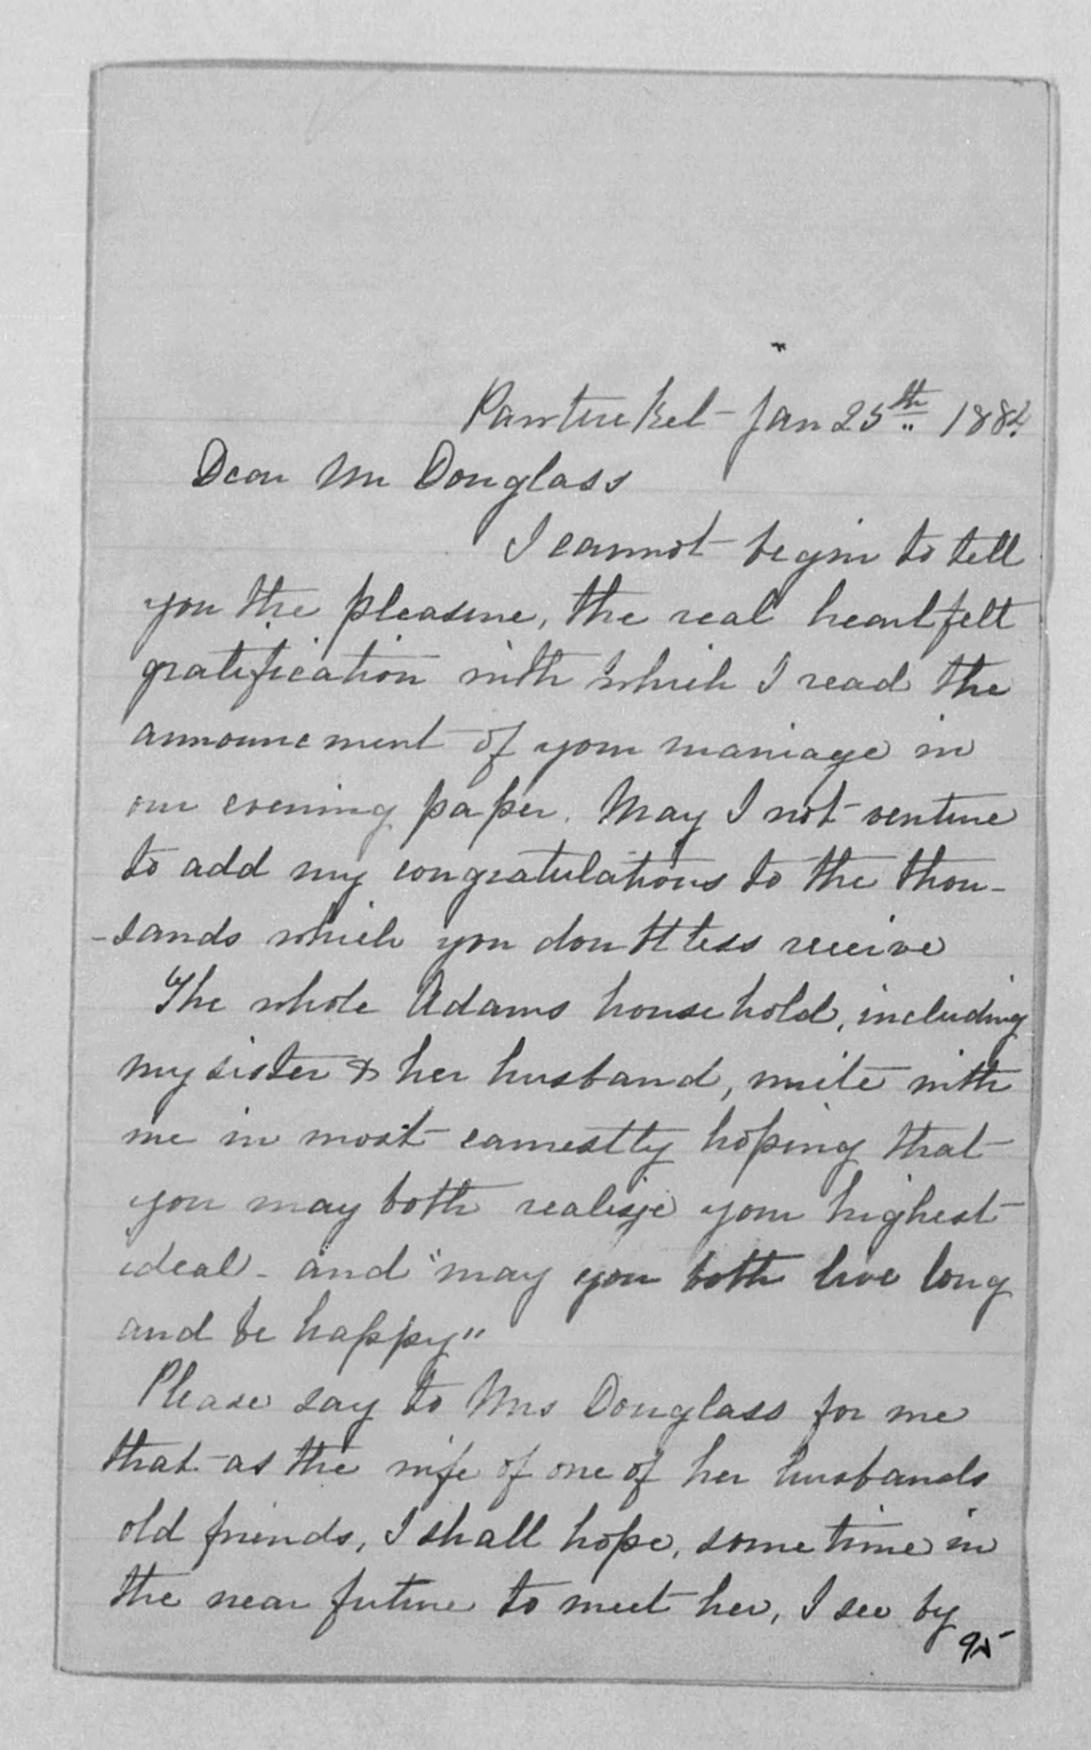 Pawtucket Jan 25th 1884.
Dear Mr Douglass
I cannot begin to tell
you the pleasure, the real heartfelt
gratification with which I read the
announcment of your marriage in
our evening paper. May I not venture
to add my congratulations to the thou-
-sands which you doubtless receive
The whole Adams household, including
my sister & her husband, unite with
me in most earnestly hoping that
you may both realize your highest
ideal - and "may you both live long
and be happy"
Please say to Mrs Douglass for me
that as the wife of one of her husbands
old friends, I shall hope, sometime in
the near future to meet her, I see by
95